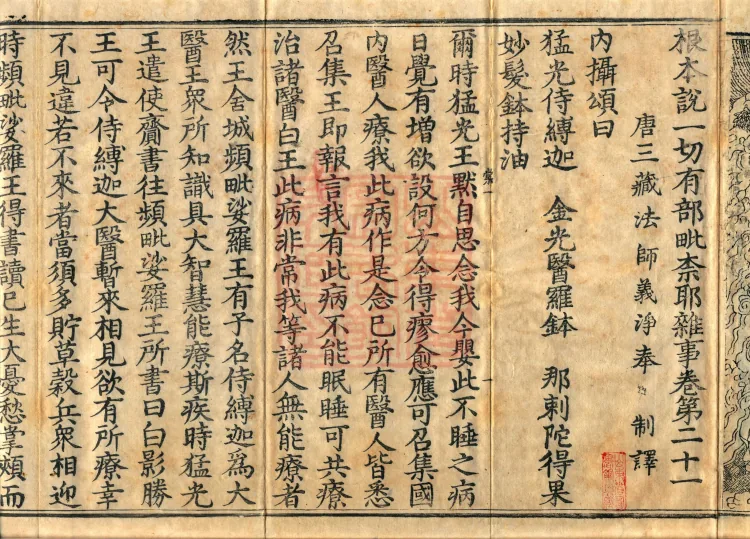 根本說一切有部毗柰耶雜事卷第二十一
唐三藏法師義淨奉 制譯
內攝頌曰
猛光侍縛迦 金光醫羅鉢 那剌陀得果
妙髮鉢持油
爾時猛光王默自思念我今嬰此不睡之病
日覺有增欲設何方令得瘳愈應可召集國
內醫人療我此病作是念已所有醫人皆悉
召集王即報言我有此病不能眠睡可共療
治諸醫白王此病非常我等諸人無能療者
然王舍城頻毗娑羅王有子名侍縛迦爲大
醫王眾所知識具大智慧能療斯疾時猛光
王遣使齎書往頻毗娑羅王所書曰白影勝
王可令侍縛迦大醫暫來相見欲有所療幸
不見違若不來者當須多貯草穀兵眾相迎
時頻毗娑羅王得書讀已生大憂愁掌頰而